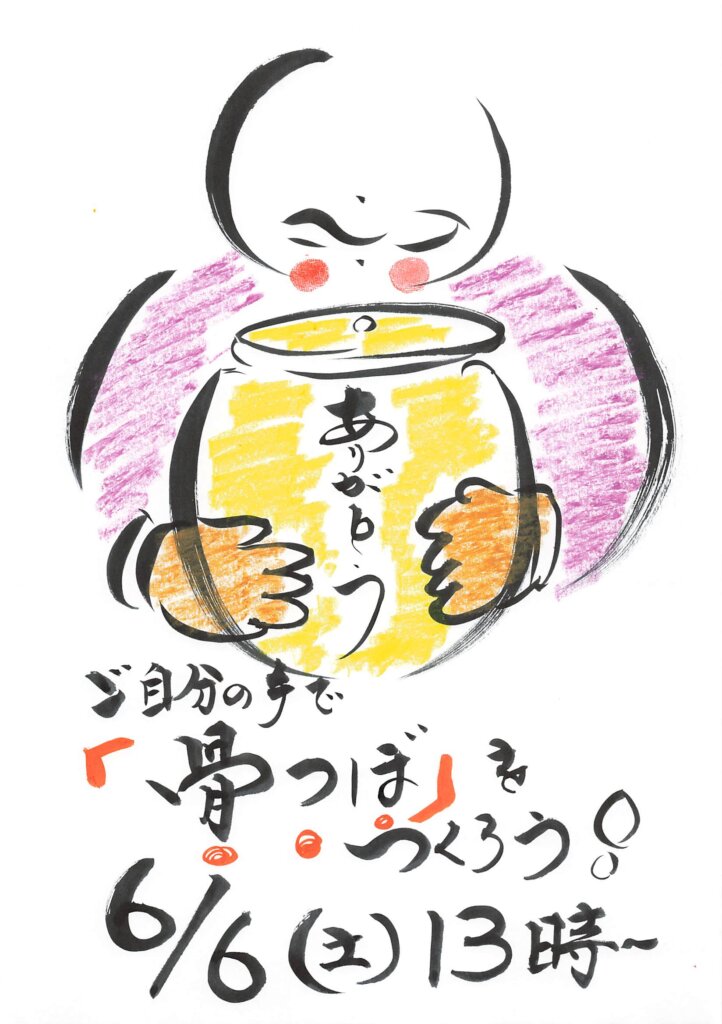 ありがとう
ご自分の手で
「骨つぼ」を
つくろう!
6/6(土)13時~